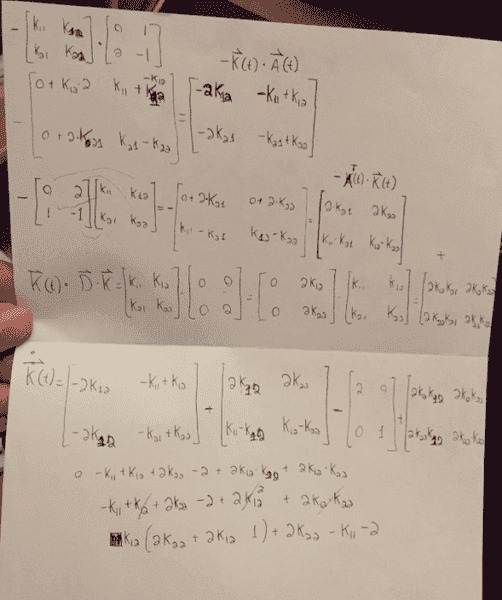 - [k₁₁ k₁₂; k₂₁ k₂₂] · [0 1; 0 -1]
-K⃗(t) · A⃗(t)
- [0 + k₁₂·2 k₁₁ + -k₁₂; 0 + 2·k₂₁ k₂₁ - k₂₂] = [-2k₁₂ -k₁₁ + k₁₂; -2k₂₁ -k₂₁ + k₂₂]
-A⃗ᵀ(t) · K⃗(t)
- [0 2; 1 -1] [k₁₁ k₁₂; k₂₁ k₂₂] = - [0 + 2·k₂₁ 0 + 2·k₂₂; k₁₁ - k₂₁ k₁₂ - k₂₂] = [2k₂₁ 2k₂₂; k₁₁ - k₂₁ k₁₂ - k₂₂]
+
K⃗(t) · D⃗ · K⃗ = [k₁₁ k₁₂; k₂₁ k₂₂] · [0 0; 0 2] = [0 2k₁₂; 0 2k₂₂] · [k₁₁ k₁₂; k₂₁ k₂₂] = [2k₁₂k₂₁ 2k₁₂k₂₂; 2k₂₂k₂₁ 2k₂₂k₂₂
K̇⃗(t) = [-2k₁₂ -k₁₁ + k₁₂; -2k₁₂ -k₂₁ + k₂₂] + [2k₁₂ 2k₂₂; k₁₁ - k₁₂ k₁₂ - k₂₂] - [2 0; 0 1] + [2k₁₂k₁₂ 2k₁₂k₂₂; 2k₂₂k₁₂ 2k₂₂k₂₂
0 -k₁₁ + k₁₂ + 2k₂₂ - 2 + 2k₁₂·k₁₂ + 2k₁₂·k₂₂
-k₁₁ + k₁₂ + 2k₂₂ - 2 + 2k₁₂² + 2k₁₂·k₂₂
k₁₂ (2k₂₂ + 2k₁₂ 1) + 2k₂₂ - k₁₁ - 2